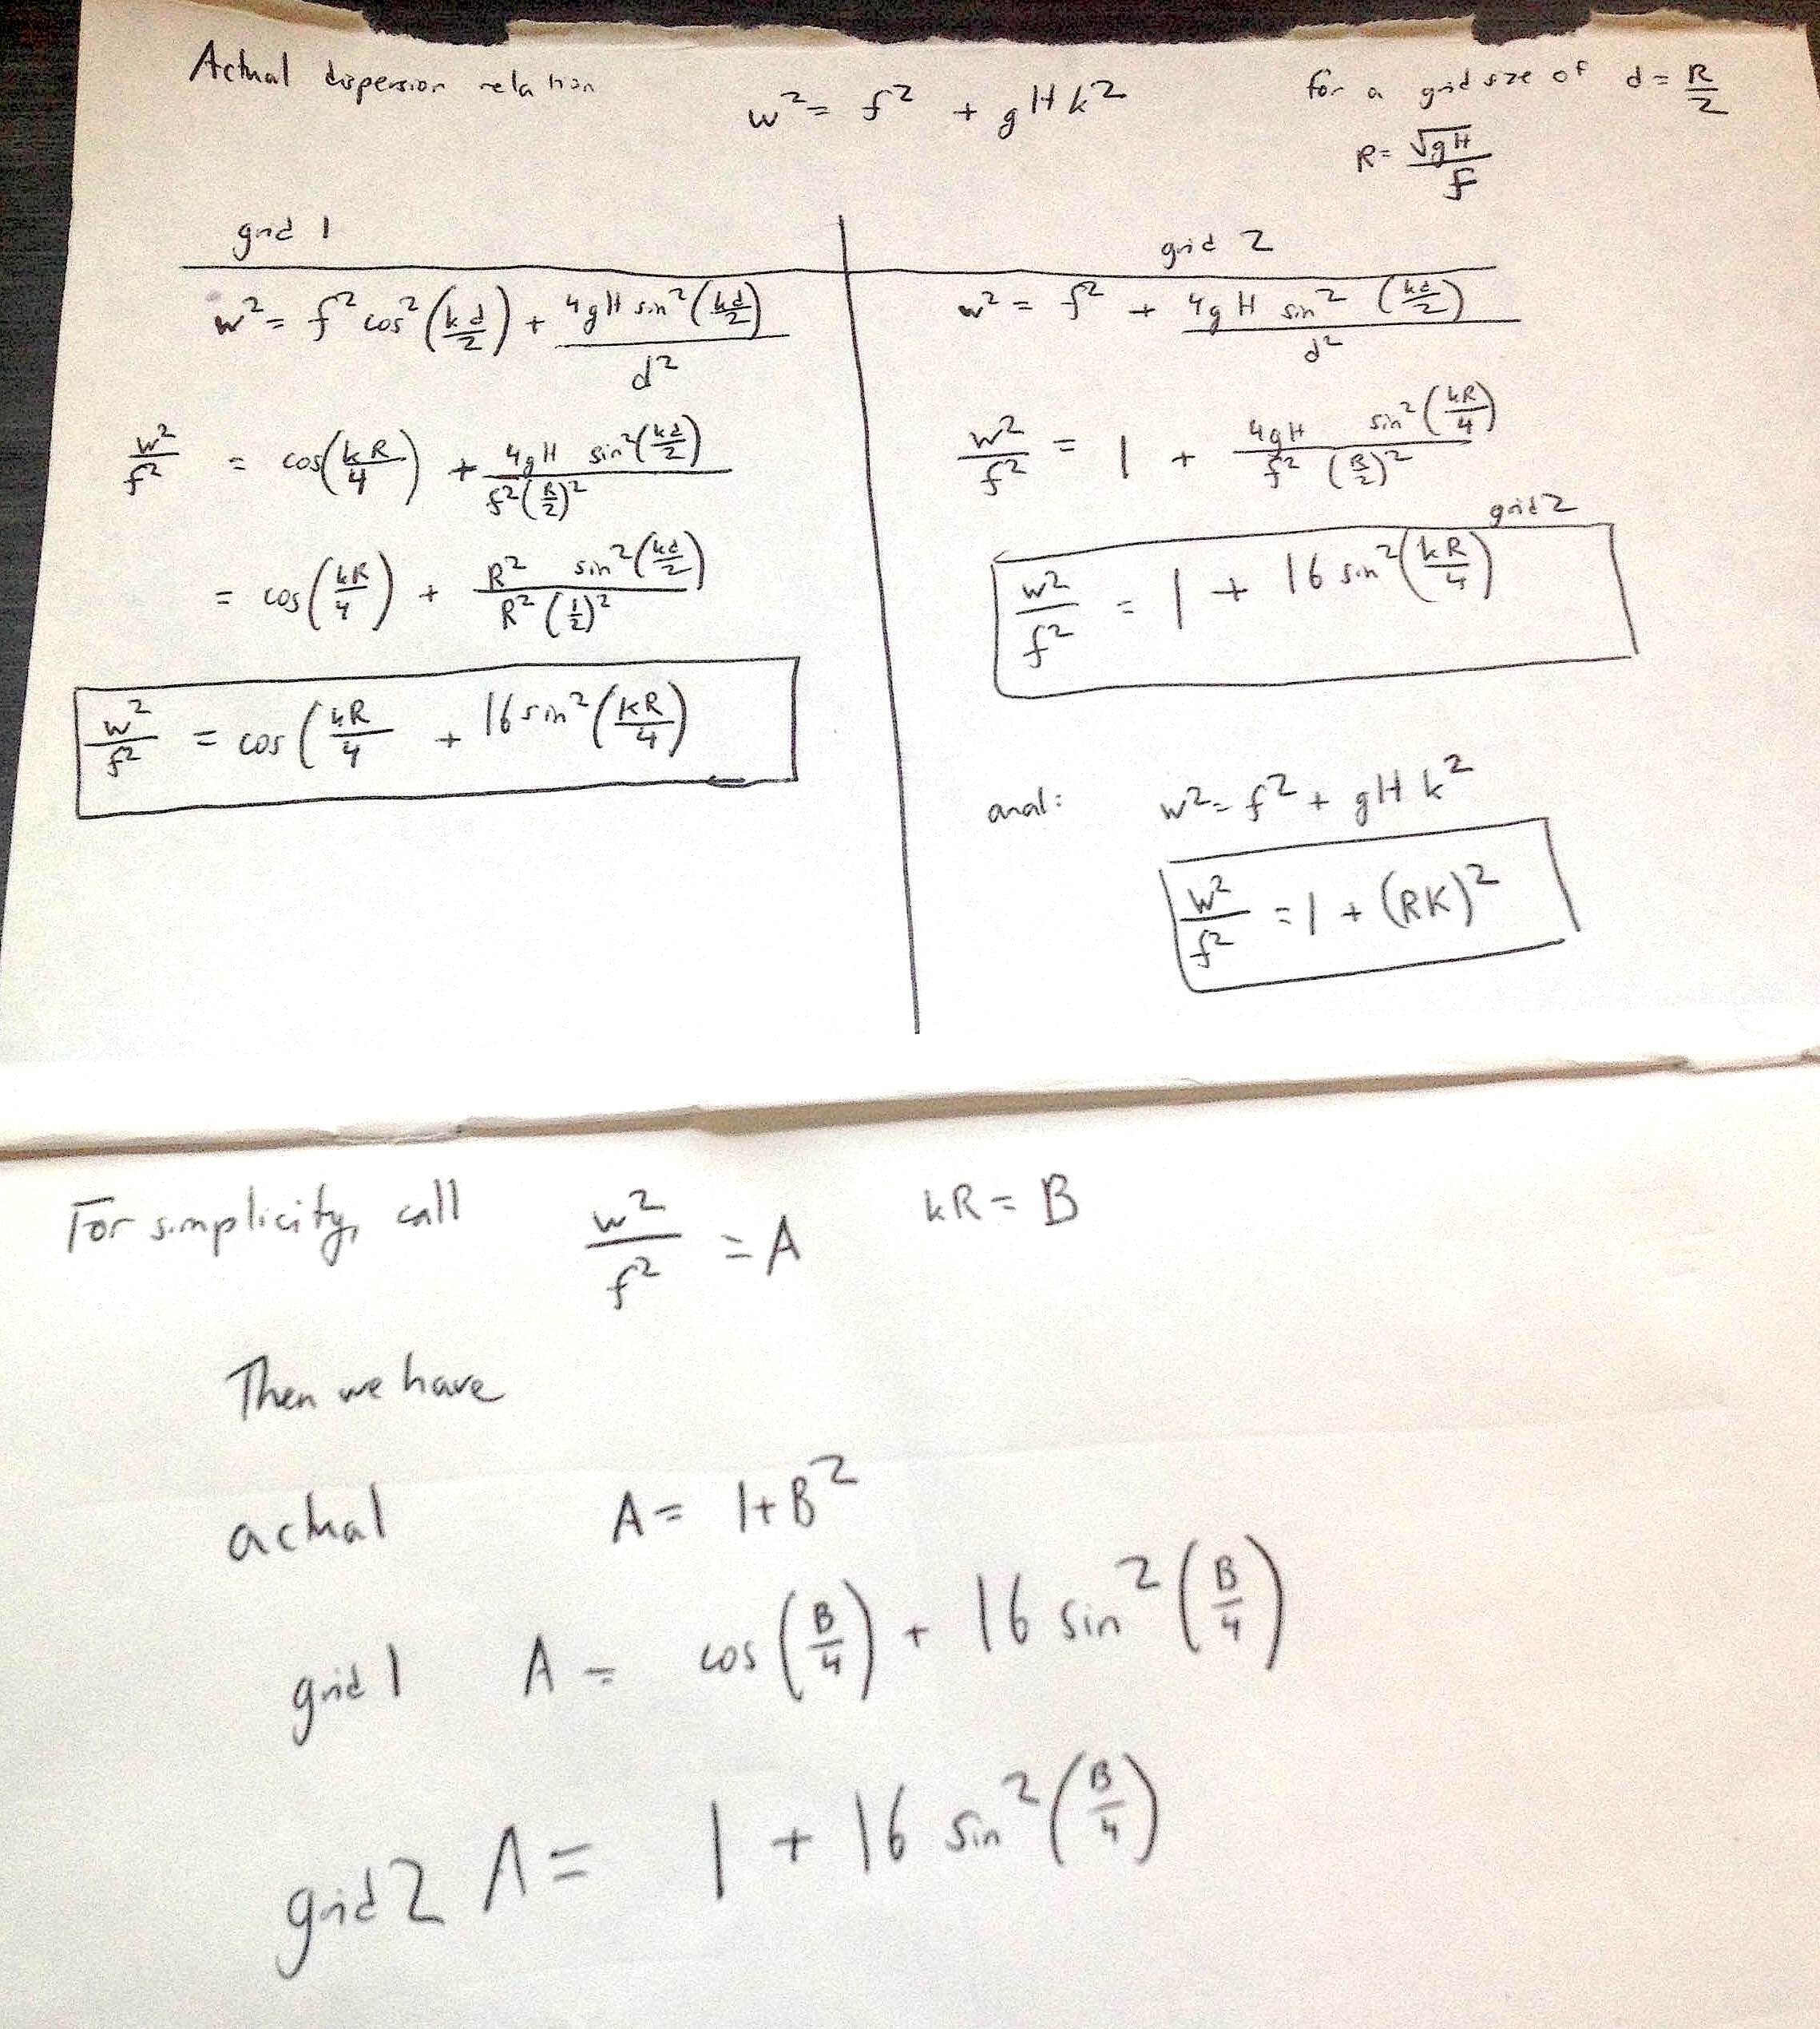 Actual dispersion relation w² = f² + gHk² for a grid size of d = R/2
R = √(gH)/f
grid 1
w² = f² cos²(kd/2) + 4gH sin²(kd/2)/d²
w²/f² = cos(kR/4) + 4gH sin²(kd/2)/(f²(R/2)²)
= cos(kR/4) + R² sin²(kd/2)/(R²(1/2)²)
w²/f² = cos(kR/4 + 16 sin²(kR/4)
grid 2
w² = f² + 4gH sin²(kd/2)/d²
w²/f² = 1 + 4gH sin²(kR/4)/(f²(R/2)²)
grid 2
w²/f² = 1 + 16 sin²(kR/4)
anal: w² = f² + gHk²
w²/f² = 1 + (RK)²
For simplicity, call w²/f² = A kR = B
Then we have
actual A = 1+B²
grid 1 A = cos(B/4) + 16 sin²(B/4)
grid 2 A = 1 + 16 sin²(B/4)